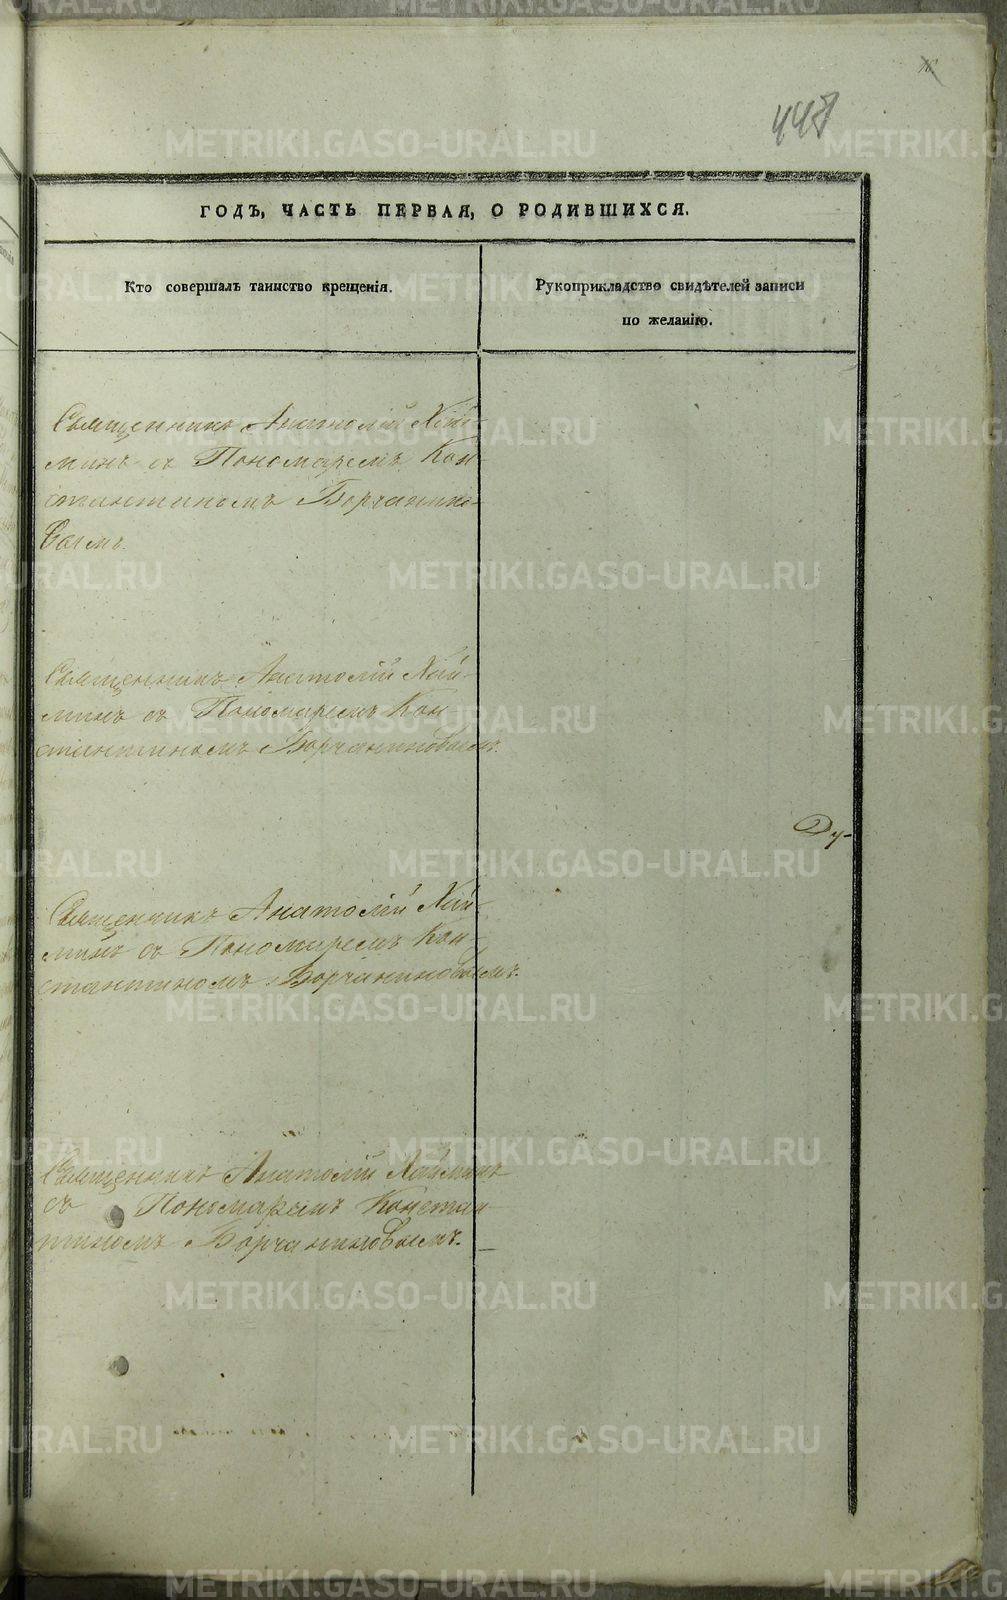 448
ГОДЪ, ЧАСТЬ ПЕРВАЯ, О РОДИВШИХСЯ.
Кто совершалъ таинство крещенія.
Рукоприкладство свидѣтелей записи
по желанію.
Священникъ Анатолій Хай-
минъ съ Пономаремъ Кон-
стантиномъ Борчанино-
вымъ.
Священникъ Анатолій Хай-
минъ съ Пономаремъ Кон
стантиномъ Борчаниновымъ.
Ду-
Священникъ Анатолій Хай-
минъ съ Пономаремъ Кон-
стантиномъ Борчаниновымъ.
Священникъ Анатолій Хайминъ
съ Пономаремъ Констан-
тиномъ Борчаниновымъ.
METRIKI.GASO-URAL.RU